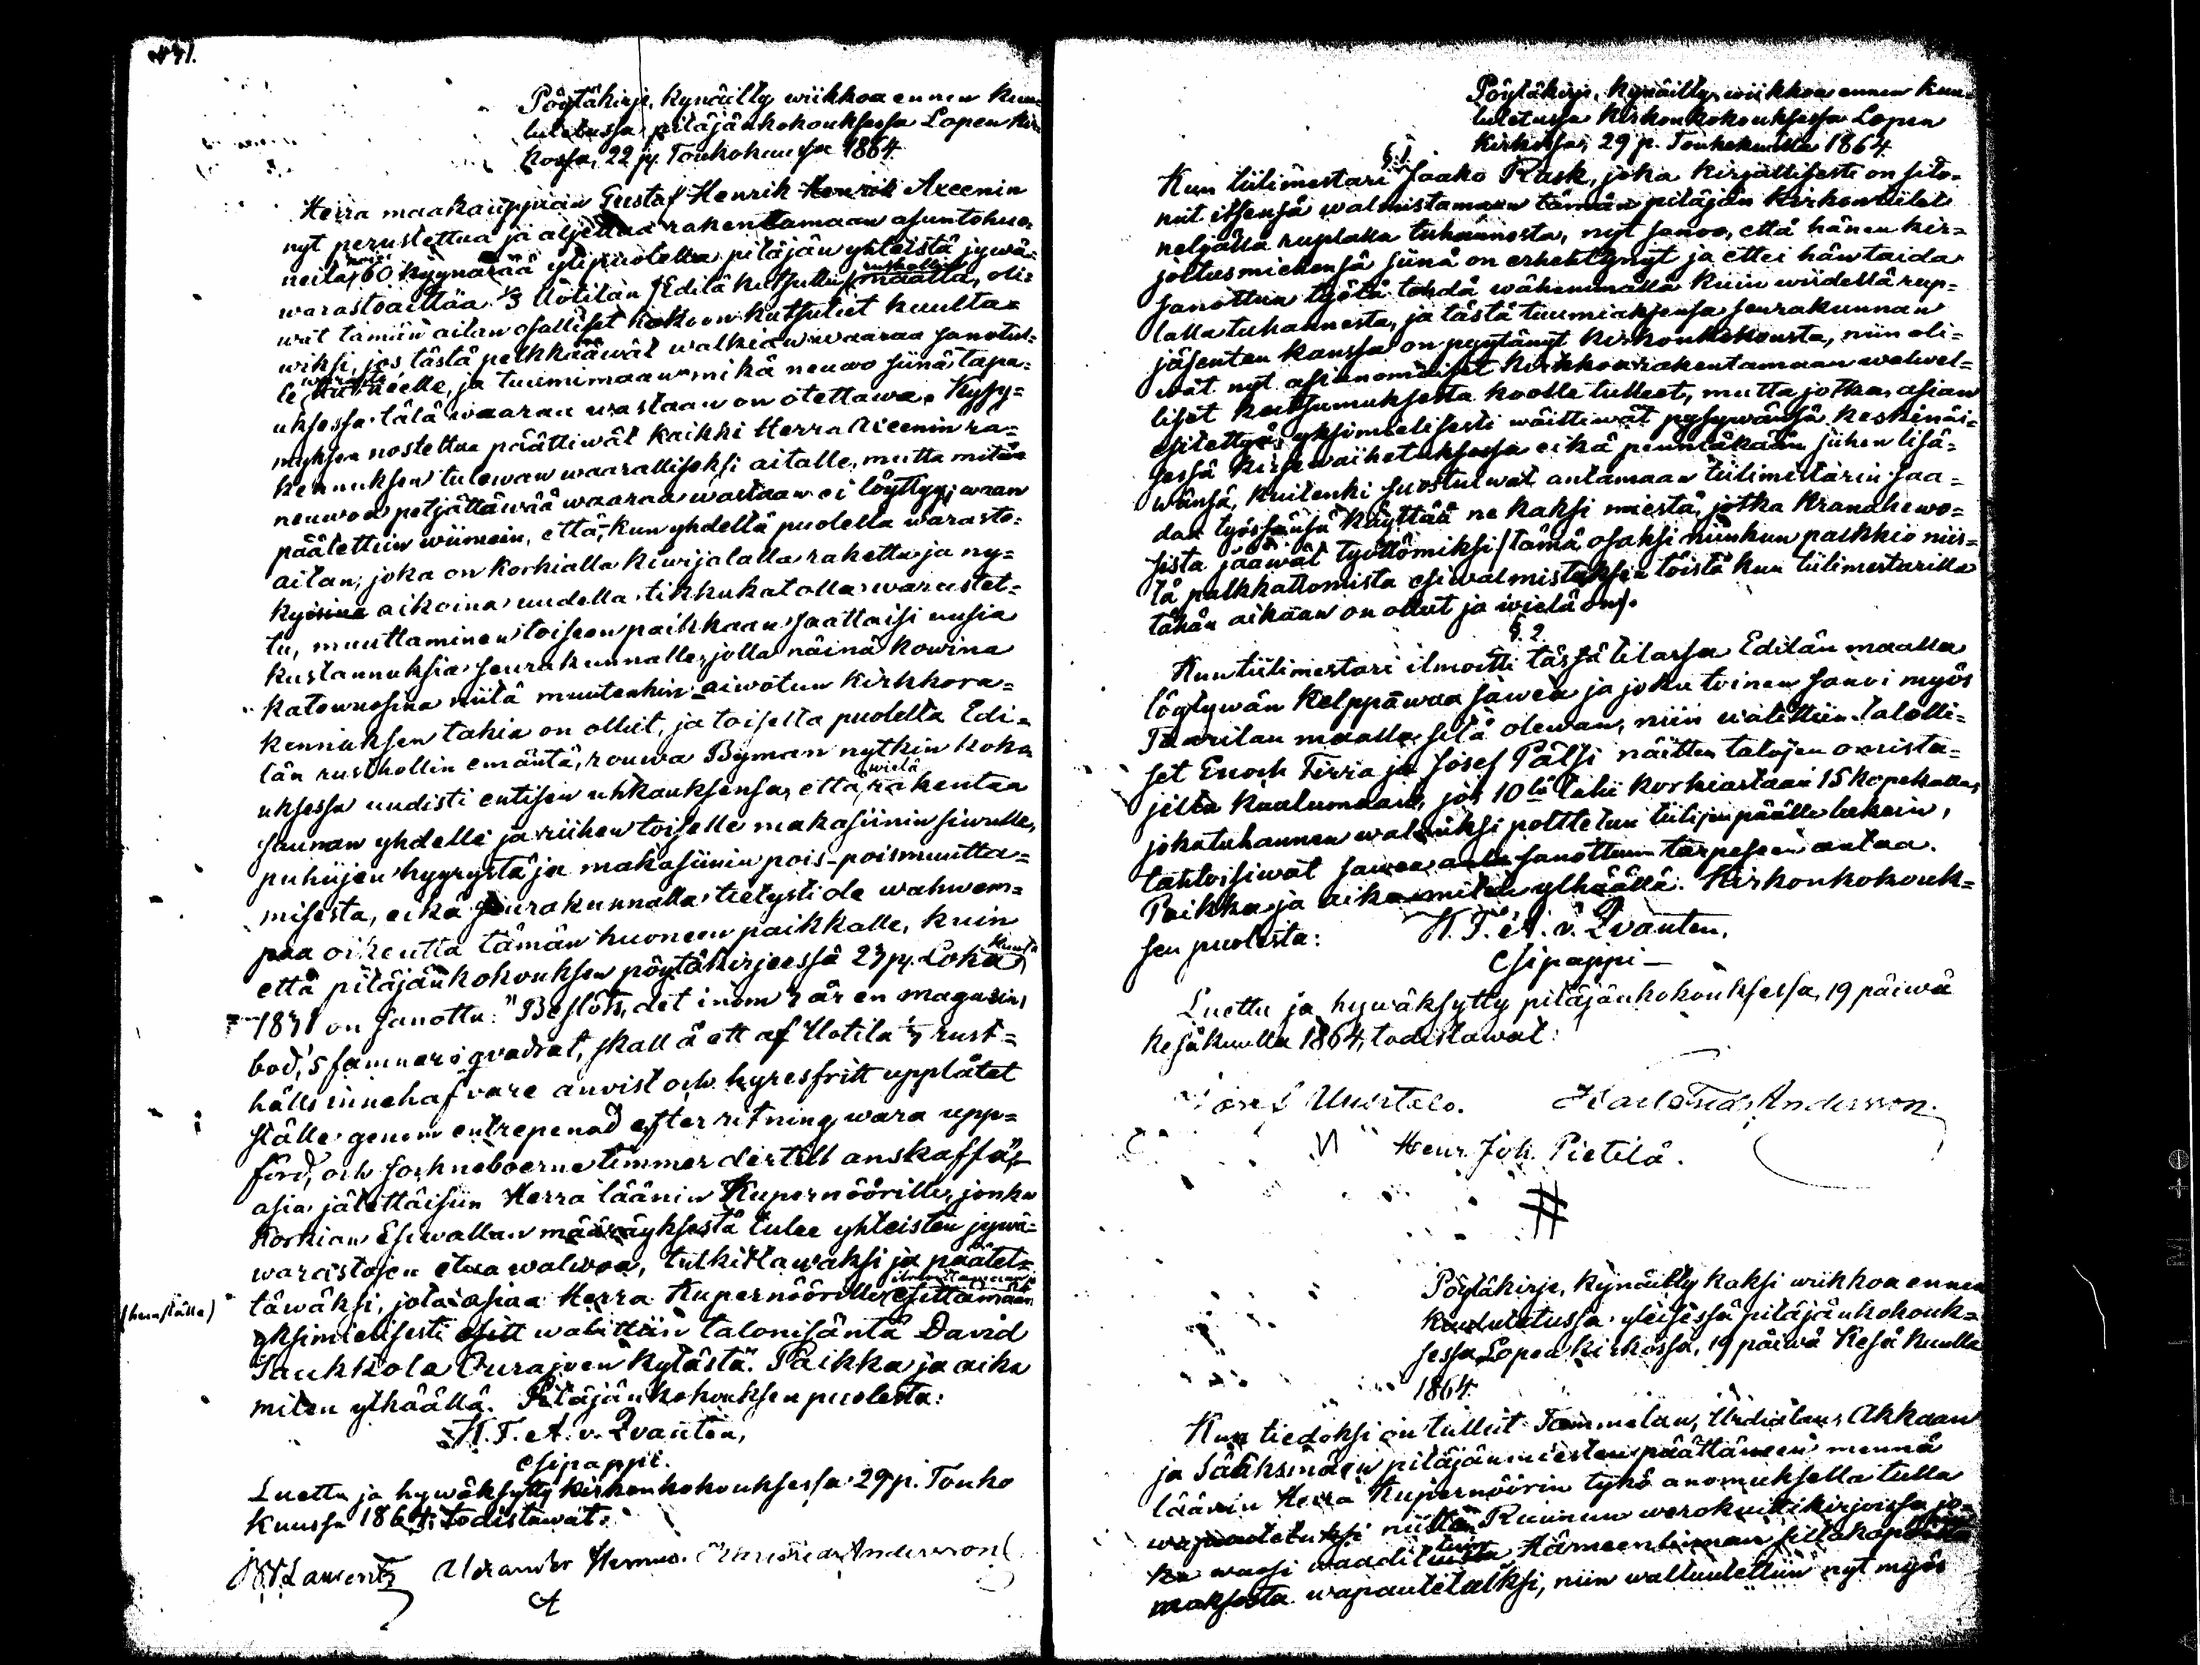 441.
Pöytäkirje, kynäilty wiikkoa ennen kuu-
lutetussa pitäjänkokouksessa Lopen kir-
kossa, 22 p. Toukokuussa 1864.
Herra maakauppian Gustaf Henrik Henrik Axeenin
nyt perustettua ja aljettua rakentamaan asuntohuo-
neita, 60 kyynärää ylipuolella pitäjän yhteistä jywä-
warastoaittaa 1/3 Uotilan Edilä kutsutun rustholli maalla, oli-
wat tämän aitan osalliset kokoon kutsutut kuulta-
wiksi, jos tästä pelkkääwät walkian waaraa sanotul-
le warasto huoneelle, ja tuumimaan mikä neuwo siinä tapa-
uksessa tätä waaraa wastaan on otettawa. Kysy-
myksen nostettua päättiwät kaikki Herra Axeenin ra-
kennuksen tulewan waaralliseksi aitalle, mutta mitän
neuwoa petjättäwää waaraa wastaan ei löyttyy; waan
päätettiin wiimein, että, kun yhdellä puolella warasto-
aitan, joka on korkialla kiwijalalla rakettu ja ny-
kyisinä aikoina uudella tikkukatolla warustet-
tu, muuttaminen toiseen paikkaan saattaisi uusia
kustannuksia seurakunnalle, jolla näinä kowina
katowuosina niitä muutenkin aiwotun kirkkora-
kennuksen takia on ollut, ja toisella puolella Edi-
län rusthollin emäntä, rouwa Byman nytkin koko-
uksessa uudisti entisen uhkauksensa, että wielä rakentaa
saunan yhdelle ja riihen toiselle makasiinin siwulle,
puhuijen hyyrystä ja makasiinin pois-poismuutta-
misesta, eikä seurakunnalla tietysti ole wahwem-
paa oikeutta tämän huoneen paikkalle, kuin
että pitäjänkokouksen pöytäkirjeessä 23 p. Loka kuuta
1831 on sanottu: "Beslöts, det inom 2 år en magasins
bod, 5 famnar i qvadrat, skall å ett af Uotila 1/3 rust-
hålls innehafvare anvist och hyresfritt upplåtet
ställe genom entrepenad efter ritning wara upp-
förd, och sockneboerne timmer dertill anskaffa";
asia jätettäisiin Herra läänin Kupernöörille, jonka
Korkian Esiwallan määräyksestä tulee yhteisten jywä-
warastojen etua walwoa, tutkittawaksi ja päätet-
(hemställa) täwäksi, jota asiaa Herra Kupernöörille esittämään
yksimielisesti esitt walittiin talonisäntä David
Saukkola Ourajoen kylästä. Paikka ja aika
miten ylhäällä. Pitäjänkokouksen puolesta:
K. F. A. v. Zvanten,
esipappi.
Luettu ja hywäksytty kirkonkokouksessa 29 p. Touko
kuussa 1864; todistawat:
Laurentz Alexander Hermus. Andersson
Pöytäkirje, kynäilty wiikkoa ennen kuu-
lutetussa kirkonkokouksessa Lopen
kirkossa, 29 p. Toukokuulla 1864.
§. 1.
Kun tiilimestari Jaako Rask, joka kirjallisesti on sito-
nut itsensä walmistamaan tämän pitäjän kirkontiilet
neljällä ruplalla tuhannesta, nyt sanoo, että hänen kir-
joitusmiehensä siinä on erhehtynyt ja ettei hän taida
sanottua työtä tehdä wähemmällä kuin wiidellä rup-
lalla tuhannesta, ja tästä tuumiaksensa seurakunnan
jäsenten kanssa on pyytänyt kirkonkokousta, niin oli-
wat nyt asianomaiset kirkkoa rakentamaan welwol-
liset kutsumuksesta koolle tulleet, mutta jotka, asian
esitettyä, yksimielisesti wäittiwät pysywänsä keskinäi-
sessä kirjewaihetuksessa eikä penniäkään siihen lisä-
wänsä, kuitenki suostuiwat antamaan tiilimestarin saa-
da työssänsä käyttää ne kaksi miestä, jotka Kranahewo-
sista jääwät työttömiksi (tämä osaksi niinkun palkkio niis-
tä palkkattomista esiwalmistuksen töistä kun tiilimestarilla
tähän aikaan on ollut ja wielä on).
§. 2.
Kun tiilimestari ilmoitti tässä tilassa Edilän maalla
löytywän kelppaawaa sawea ja joku toinen sanoi myös
Taarilan maalla sitä olewan, niin walittiin talolli-
set Enoch Firra ja Josef Pätsi näitten talojen omista-
jilta kuulumaan, jos 10 tä tahi korkiastaan 15 kopekalla
jokatuhannen walmiiksi polttetun tiilijen päälle lukein,
tahtoisiwat sawea sanottuun tarpeseen antaa.
Paikka ja aika miten ylhäällä. Kirkonkokouk-
sen puolesta: K. F. A. v. Zvanten,
esipappi
Luettu ja hywäksytty pitäjänkokouksessa, 19 päiwä
kesäkuulla 1864, todistawat:
Uusitalo. Andersson.
Henr. Joh. Pietilä.
Pöytäkirje, kynäilty kaksi wiikkoa ennen
kuulutetussa yleisessä pitäjänkokouk-
sessa Lopen kirkossa, 19 päiwä Kesäkuulla
1864.
Kun tiedoksi on tullut Tammelan, Urdialan, Akkaan
ja Sääksmäen pitäjänmiesten päättäneen mennä
läänin Herra Kupernöörin tykö anomuksella tulla
wapautetuksi niistän Ruunun werokuittikirjoissa jo-
ka wuosi waaditusta Hämeenlinnan siltakapo
maksosta wapautetuksi, niin waltuutettiin nyt myös